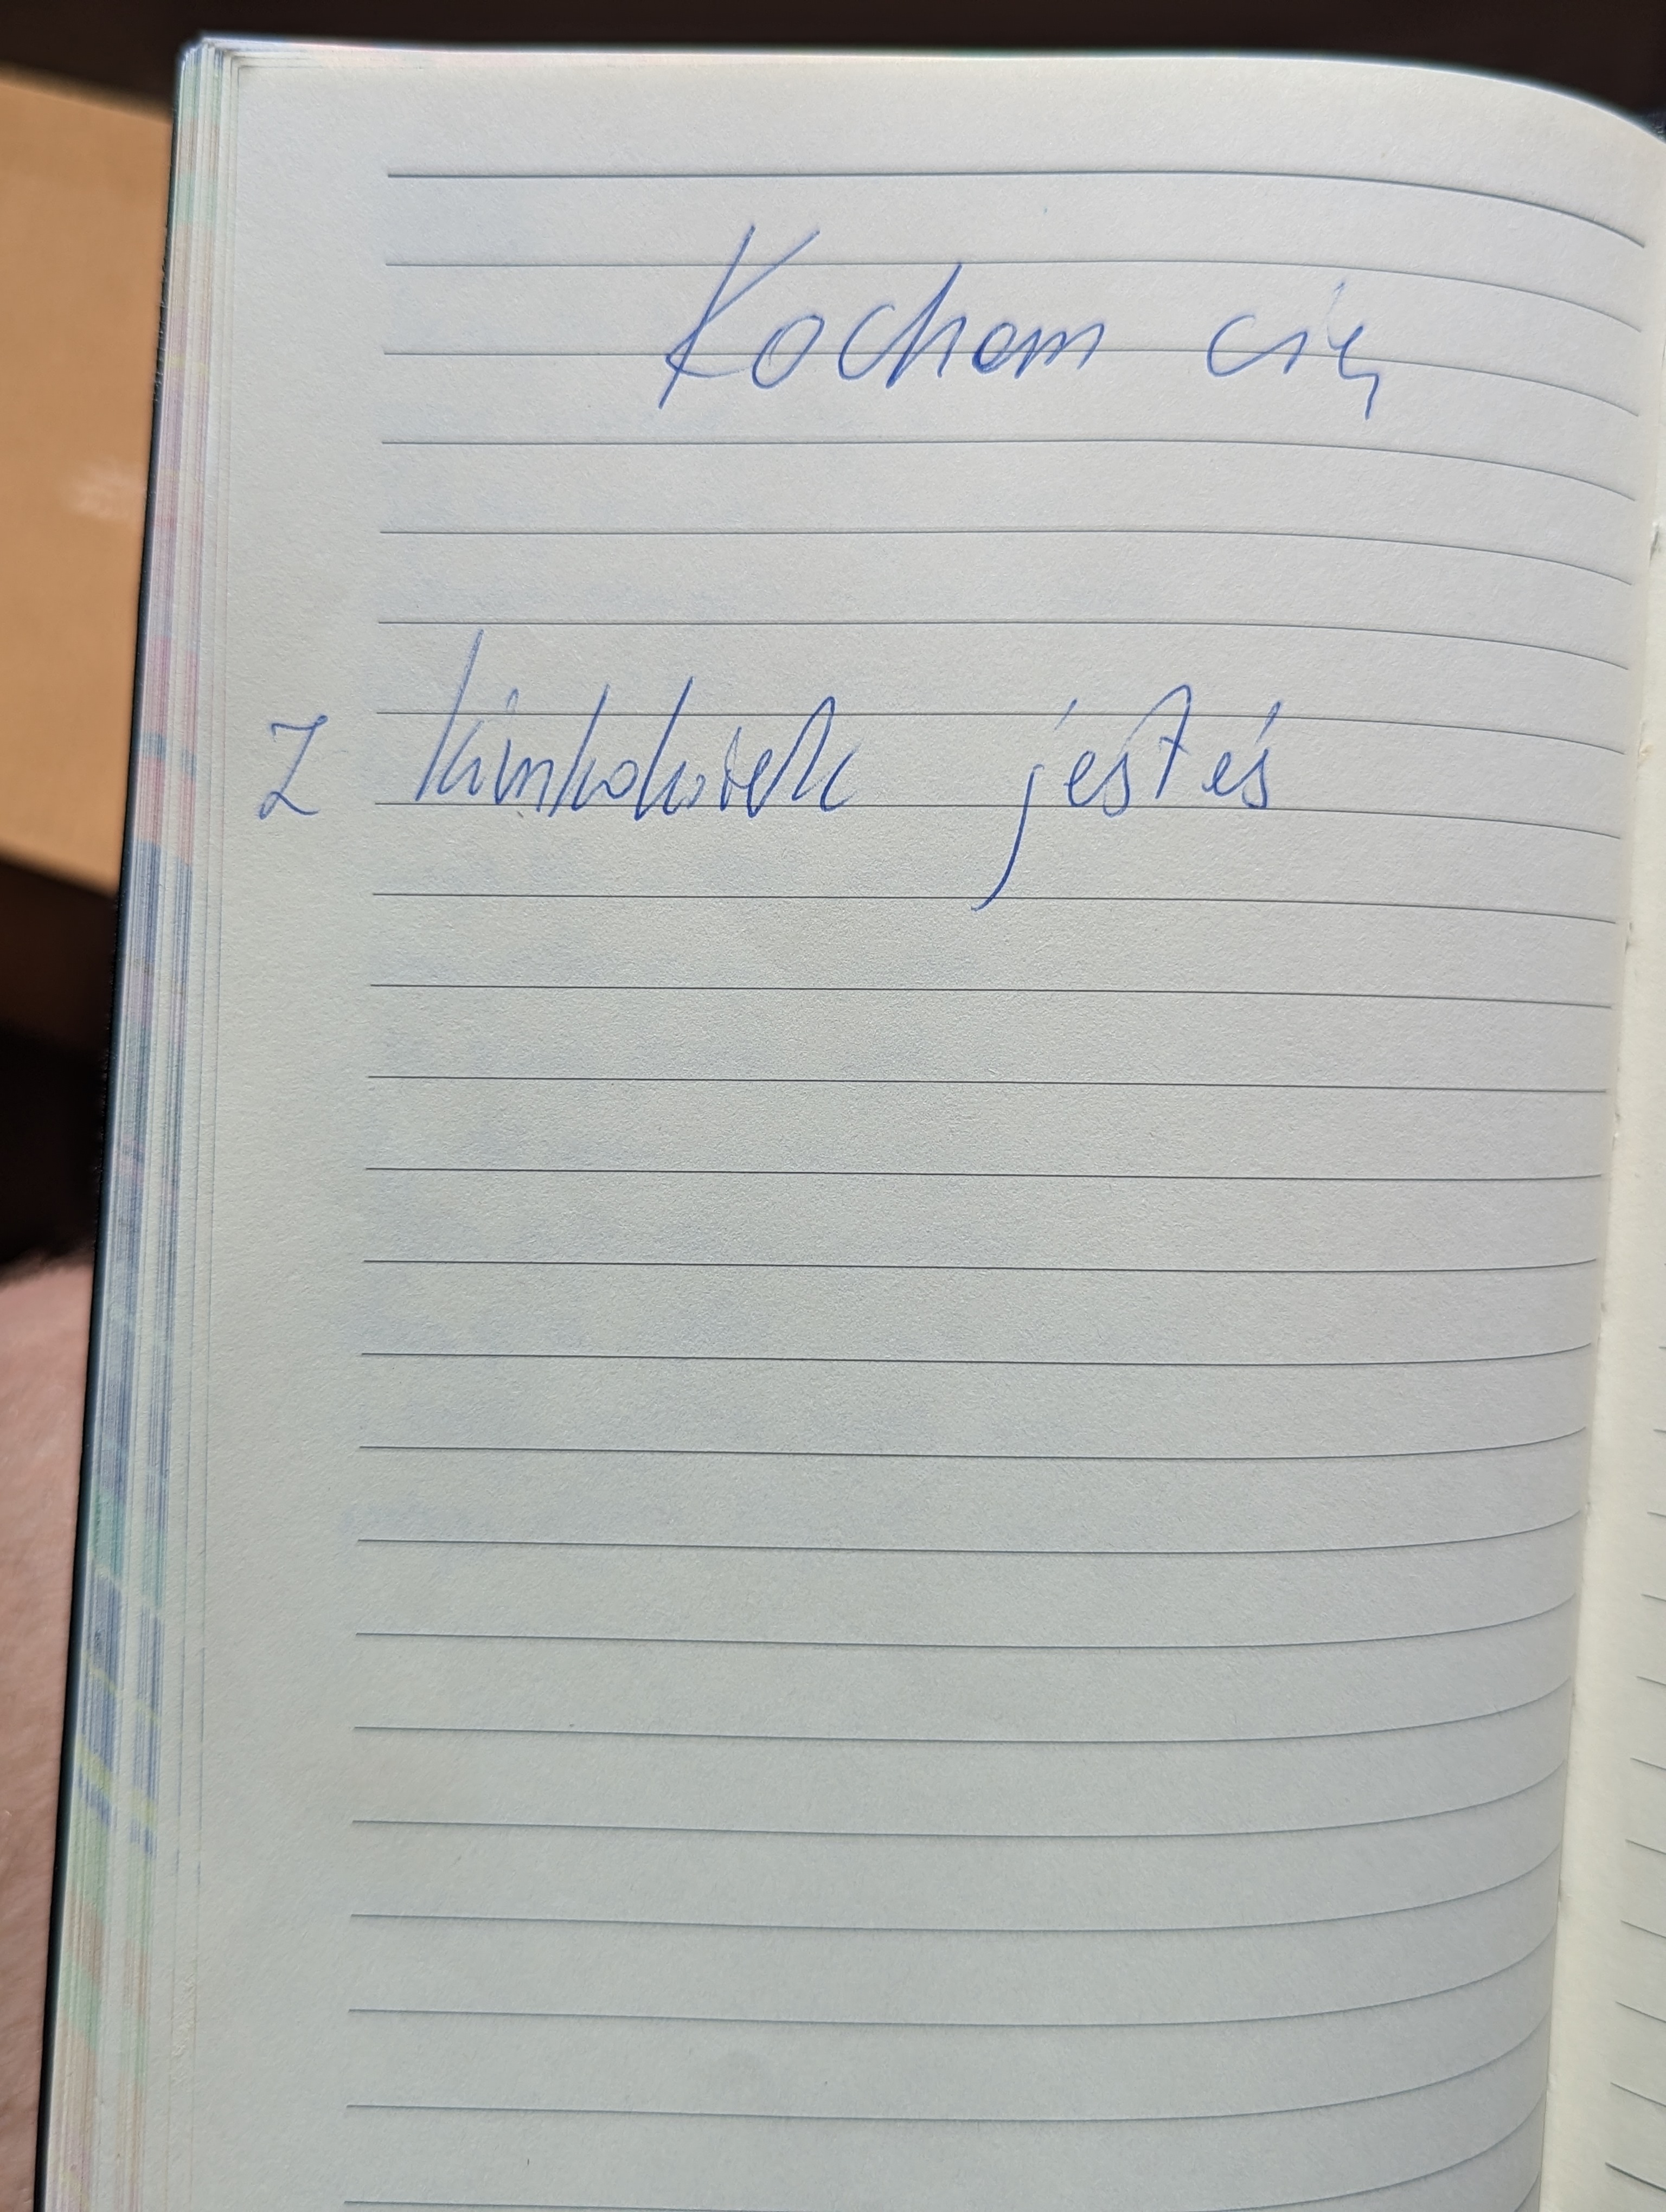 Kocham cię
Z kimkolwiek jesteś